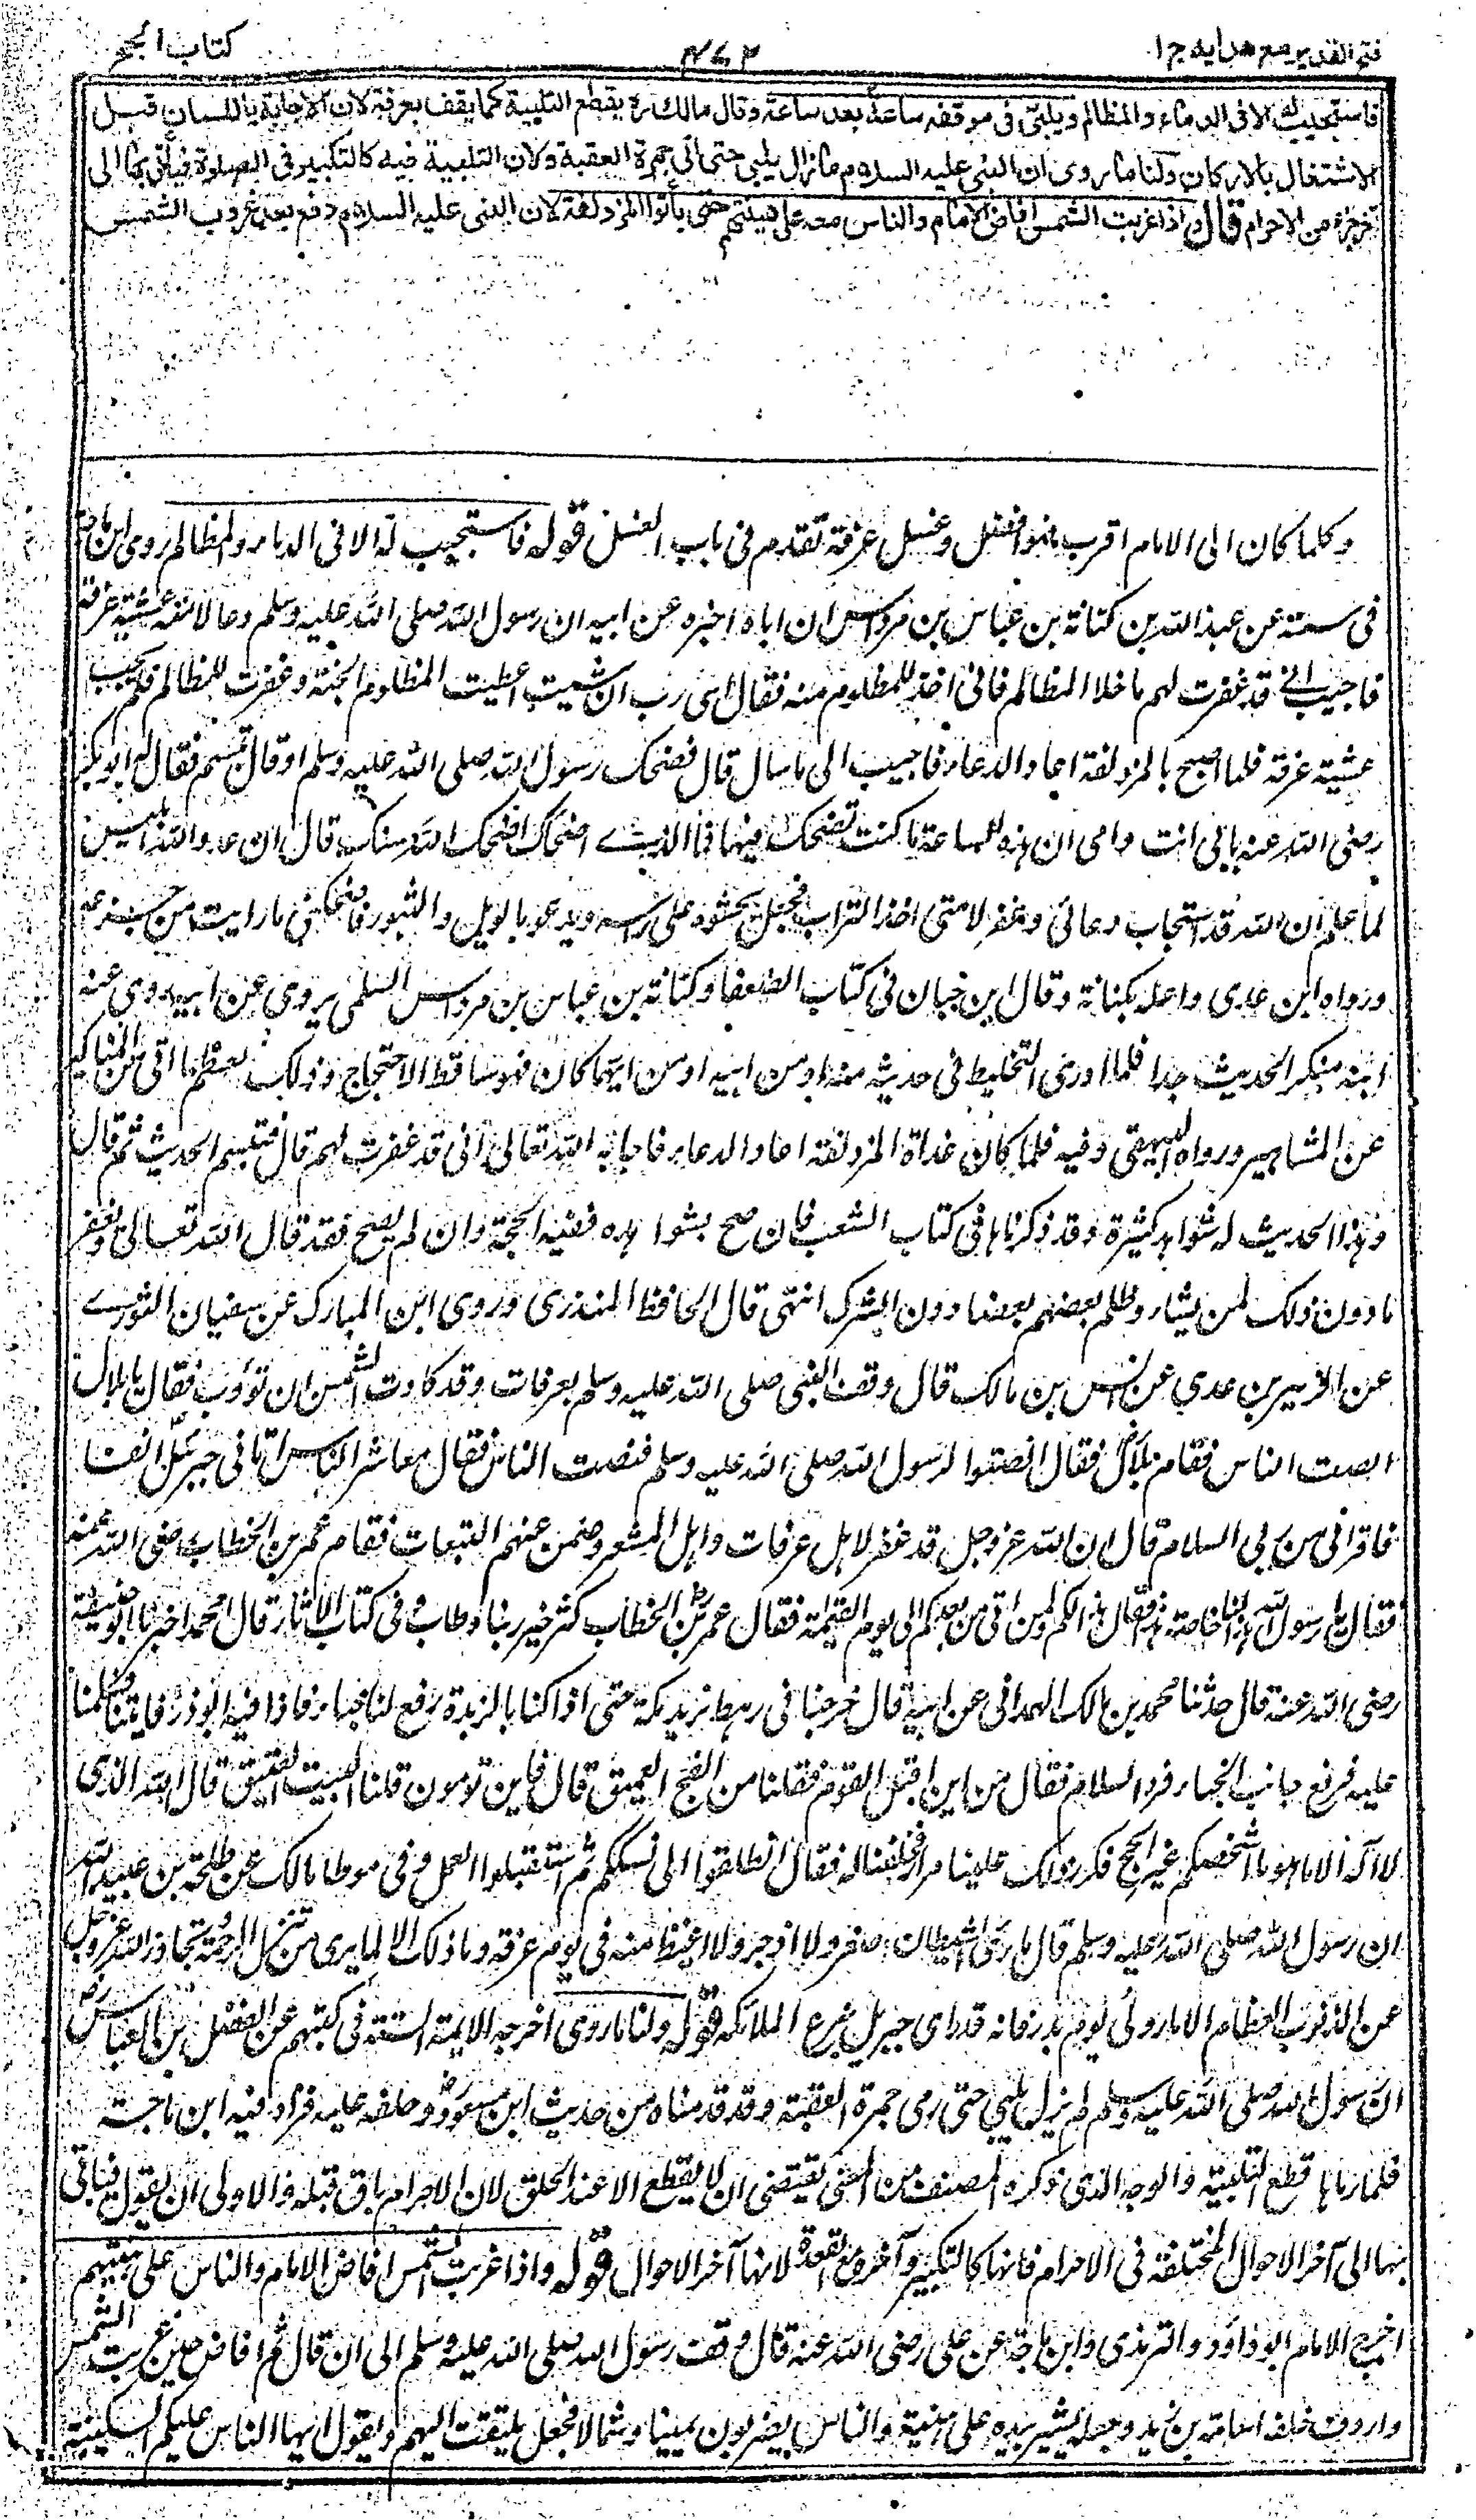 فتح القدير مع هدايه ج ا
٣٧٢
كتاب الحج
فاستجيب له الا فى الدماء والمظالم ويلبى فى موقفه ساعة بعد ساعة وقال مالك ره يقطع التلبية كما يقف بعرفة لان الاجابة باللسان قبل
الاشتغال بالاركان ولنا ما روى ان النبى عليه السلام ما زال يلبى حتى اتى جمرة العقبة ولان التلبية فيه كالتكبير فى الصلوة فيأتى بها الى
آخر جزء من الاحرام قال واذا غربت الشمس افاض الامام والناس معه على هينتهم حتى يأتوا المزدلفة لان النبى عليه السلام دفع بعد غروب الشمس
وكلما كان الى الامام اقرب فهو افضل وغسل عرفة تقدم فى باب الغسل قوله فاستجيب له الا فى الدماء والمظالم روى ابن ماجة
فى سننه عن عبد الله بن كنانة بن عباس بن مرداس ان اباه اخبره عن ابيه ان رسول الله صلى الله عليه وسلم دعا لامته عشية عرفة
فاجيب انى قد غفرت لهم ما خلا المظالم فانى آخذ للمظلوم منه فقال اى رب ان شئت اعطيت المظلوم الجنة وغفرت للظالم فلم يجب
عشية عرفة فلما اصبح بالمزدلفة اعاد الدعاء فاجيب الى ما سال قال فضحك رسول الله صلى الله عليه وسلم او قال تبسم فقال له ابو بكر
رضى الله عنه بابى انت وامى ان هذه لساعة ما كنت تضحك فيها فما الذى اضحكك اضحك الله سنك قال ان عدو الله ابليس
لما علم ان الله قد استجاب دعائى وغفر لامتى اخذ التراب فجعل يحثوه على راسه ويدعو بالويل والثبور فاضحكنى ما رايت من جزعه
ورواه ابن عدى واعله بكنانة وقال ابن حبان فى كتاب الضعفاء كنانة بن عباس بن مرداس السلمى يروى عن ابيه روى عنه
ابنه منكر الحديث جدا فلا ادرى التخليط فى حديثه منه او من ابنه او من ايهما كان فهو ساقط الاحتجاج وذلك لعظم ما اتى من المناكير
عن المشاهير ورواه البيهقى وفيه فلما كان غداة المزدلفة اعاد الدعاء فاجابه الله تعالى انى قد غفرت لهم قال فتبسم الحديث ثم قال
وهذا الحديث له شواهد كثيرة وقد ذكرناها فى كتاب الشعب فان صح بشواهده ففيه الحجة وان لم يصح فقد قال الله تعالى ويغفر
ما دون ذلك لمن يشاء وظلم بعضهم بعضا دون الشرك انتهى قال الحافظ المنذرى وروى ابن المبارك عن سفيان الثورى
عن الزبير بن عدي عن انس بن مالك قال وقف النبى صلى الله عليه وسلم بعرفات وقد كادت الشمس ان تؤوب فقال يا بلال
انصت الناس فقام بلال فقال انصتوا لرسول الله صلى الله عليه وسلم فنصت الناس فقال معاشر الناس اتانى جبرئيل آنفا
فاقرانى من ربي السلام قال ان الله عز وجل قد غفر لاهل عرفات واهل المشعر وضمن عنهم التبعات فقام عمر بن الخطاب رضى الله عنه
فقال يا رسول الله هذا لنا خاصة فقال هذا لكم ولمن اتى من بعدكم الى يوم القيمة فقال عمر بن الخطاب كثر خير ربنا وطاب وفى كتاب الآثار قال محمد اخبرنا ابو حنيفة
رضى الله عنه قال حدثنا محمد بن مالك الهمدانى عن ابيه قال خرجنا فى رهط نريد مكة حتى اذا كنا بالربذة رفع لنا خباء فاذا فيه ابو ذر فاتيناه فسلمنا
عليه فرفع جانب الخباء فرد السلام فقال من اين اقبل القوم فقلنا من الفج العميق قال فاين تؤمون قلنا البيت العتيق قال الله الذى
لا اله الا هو ما اشخصكم غير الحج فكرر ذلك علينا مرارا فحلفنا له فقال انطلقوا الى نسككم ثم استقبلوا العمل وفى موطا مالك عن طلحة بن عبيد الله
ان رسول الله صلى الله عليه وسلم قال ما رئى الشيطان اصغر ولا ادحر ولا اغيظ منه فى يوم عرفة وما ذلك الا لما يرى من تنزل الرحمة وتجاوز الله عز وجل
عن الذنوب العظام الا ما روئى يوم بدر فانه قد راى جبريل يزع الملائكة قوله ولنا ما روى اخرجه الايمة الستة فى كتبهم عن الفضل بن العباس رض
ان رسول الله صلى الله عليه وسلم لم يزل يلبي حتى رمى جمرة العقبة وقد قدمناه من حديث ابن مسعود رض وحلفه عليه فزاد فيه ابن ماجة
فلما رماها قطع التلبية والوجه الذى ذكره المصنف من المعنى يقتضى ان لا يقطع الا عند الحلق لان الاحرام باق قبله والاولى ان يقول فيأتى
بها الى آخر الاحوال المختلفة فى الاحرام فانها كالتكبير وآخره مع القعدة لانها آخر الاحوال قوله واذا غربت الشمس افاض الامام والناس على هينتهم
اخرج الامام ابو داود والترمذى وابن ماجة عن على رضى الله عنه قال وقف رسول الله صلى الله عليه وسلم الى ان قال ثم افاض حين غربت الشمس
واردف خلفه اسامة بن زيد وجعل يشير بيده على هينته والناس يضربون يمينا وشمالا فجعل يلتفت اليهم ويقول ايها الناس عليكم السكينة